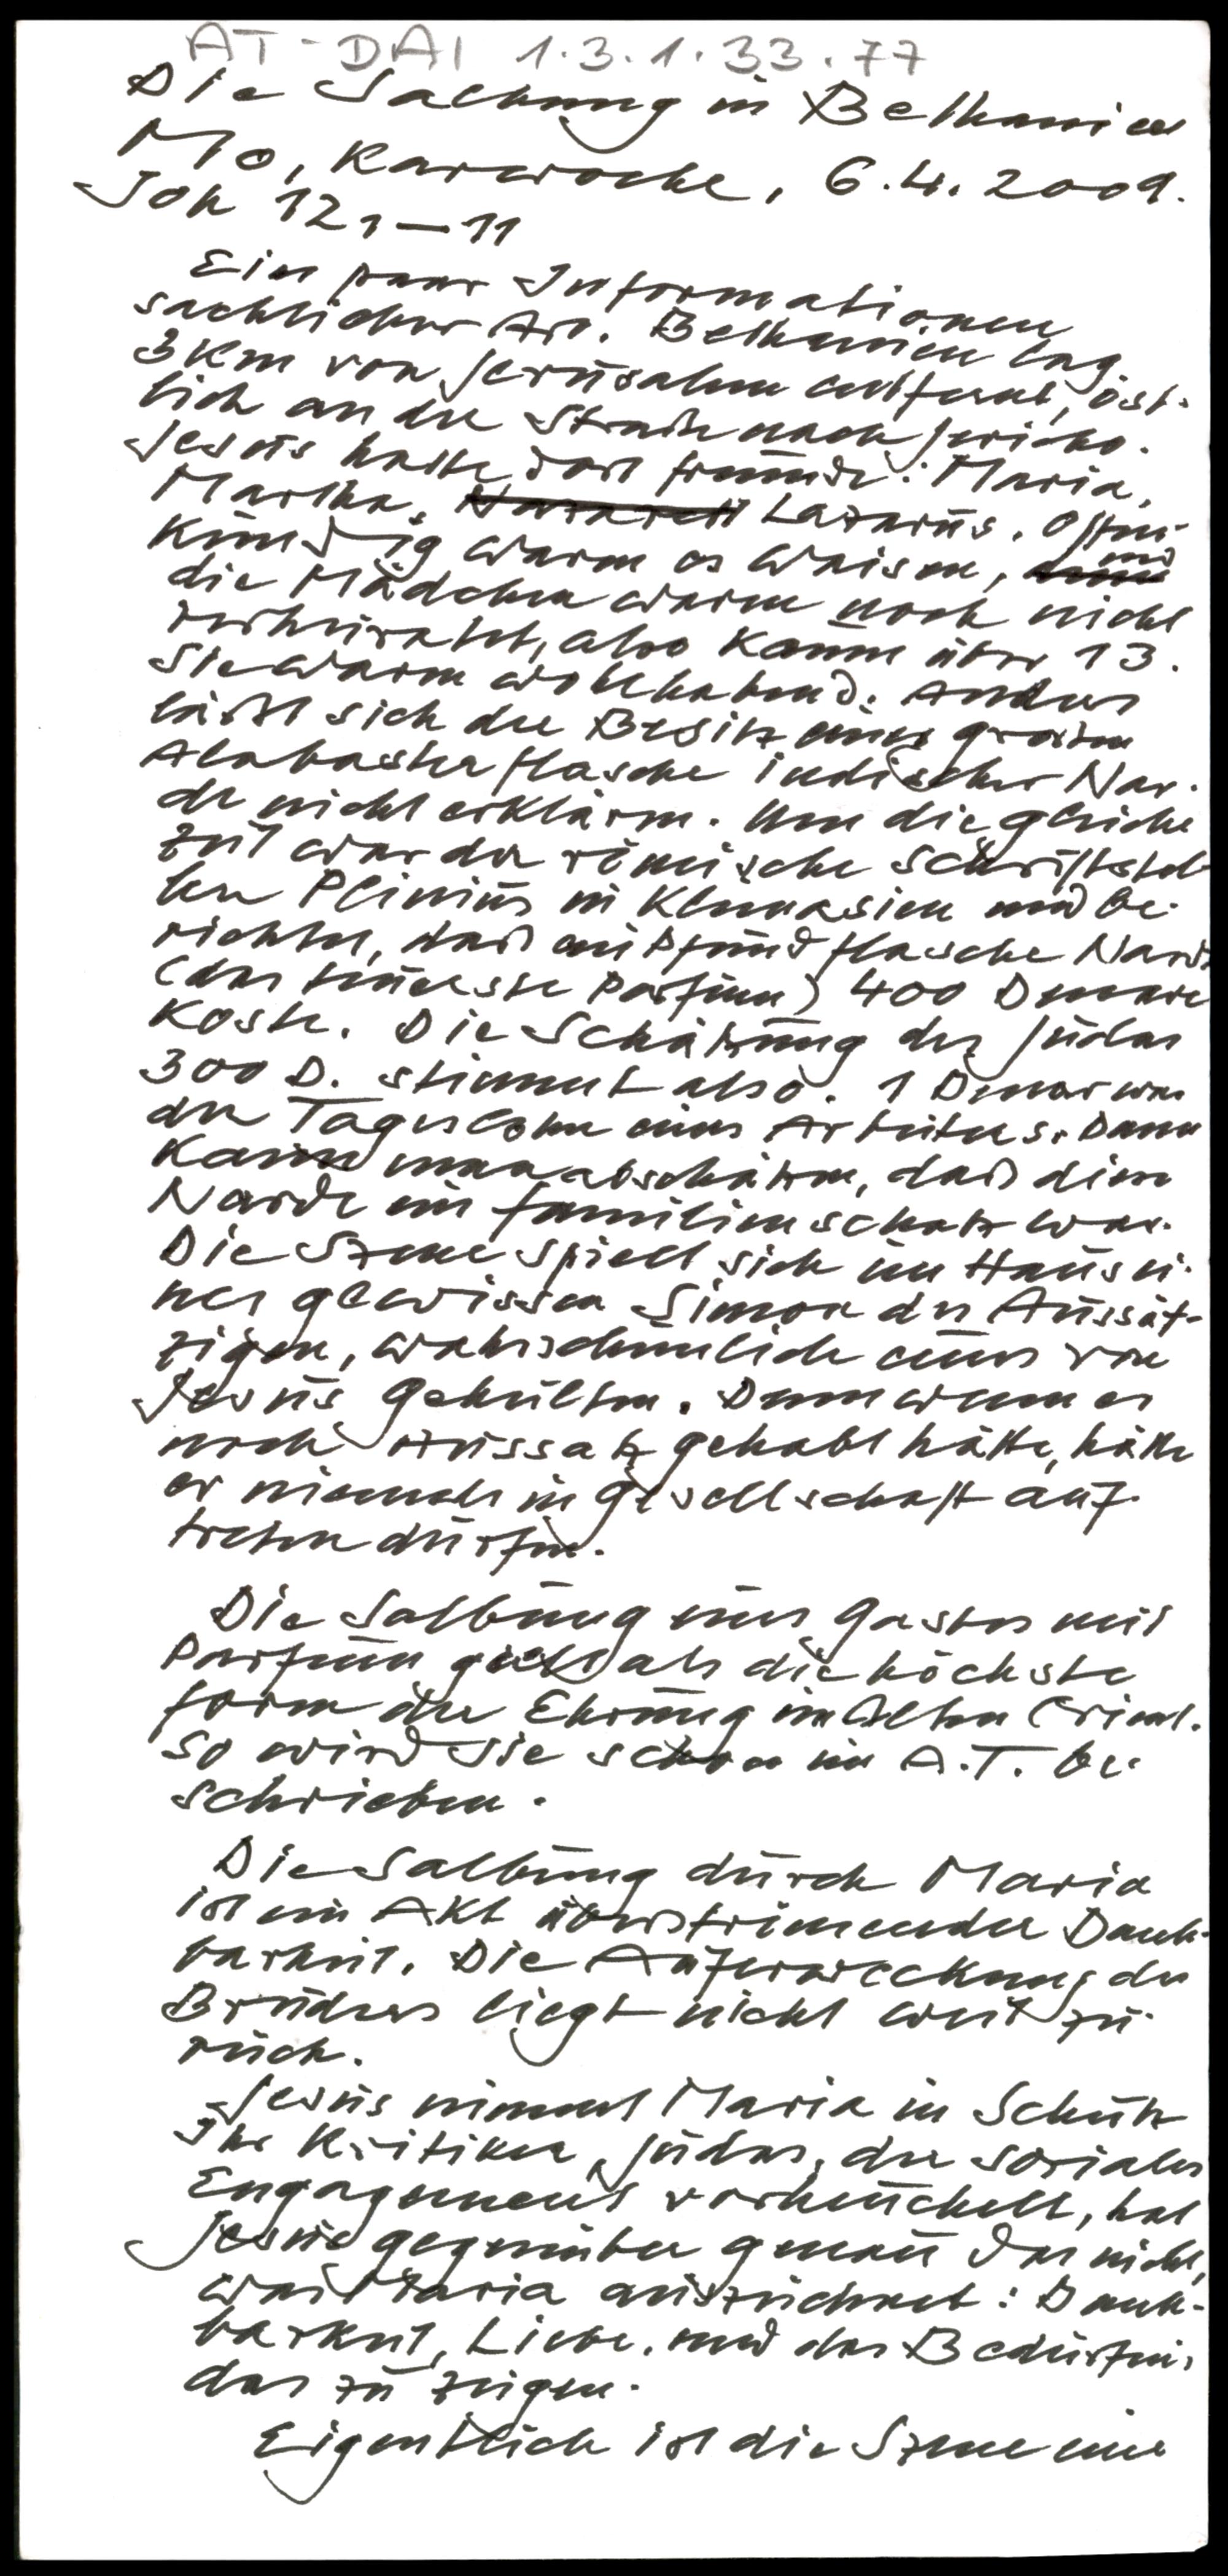 AT-DAI 1.3.1.33.77
Die Salbung in Bethanien
Mo, Karwoche, 6.4.2009.
Joh 12 1–11
Ein paar Informationen
sachlicher Art. Bethanien lag
3 Km von Jerusalem entfernt, öst-
lich an der Straße nach Jericho.
Jesus hatte dort Freunde: Maria,
Martha, Lazarus. Offen-
kundig waren es Waisen, und
die Mädchen waren noch nicht
verheiratet, also kaum über 13.
Sie waren wohlhabend. Anders
läßt sich der Besitz einer großen
Alabasterflasche indischer Nar-
de nicht erklären. Um die gleiche
Zeit war der römische Schriftstel-
ler Plinius in Kleinasien und be-
richtet, daß ein Pfundflasche Narde
(das teuerste Parfum) 400 Denare
koste. Die Schätzung des Judas
300 D. stimmt also. 1 Denar war
der Tageslohn eines Arbeiters. Dann
kann man abschätzen, daß diese
Narde ein Familienschatz war.
Die Szene spielt sich im Haus ei-
nes gewissen Simon des Aussät-
zigen, wahrscheinlich eines von
Jesus geheilten. Denn wenn er
noch Aussatz gehabt hätte, hätte
er niemals in Gesellschaft auf-
treten dürfen.
Die Salbung eines Gastes mit
Parfum galt als die höchste
Form der Ehrung im Alten Orient.
So wird sie schon im A.T. be-
schrieben.
Die Salbung durch Maria
ist ein Akt überströmender Dank-
barkeit. Die Auferweckung des
Bruders liegt nicht weit zu-
rück.
Jesus nimmt Maria in Schutz
Ihr Kritiker, Judas, der soziales
Engagement vorheuchelt, hat
Jesus gegenüber genau das nicht,
was Maria auszeichnet: Dank-
barkeit, Liebe, und das Bedürfnis
das zu zeigen.
Eigentlich ist die Szene eine